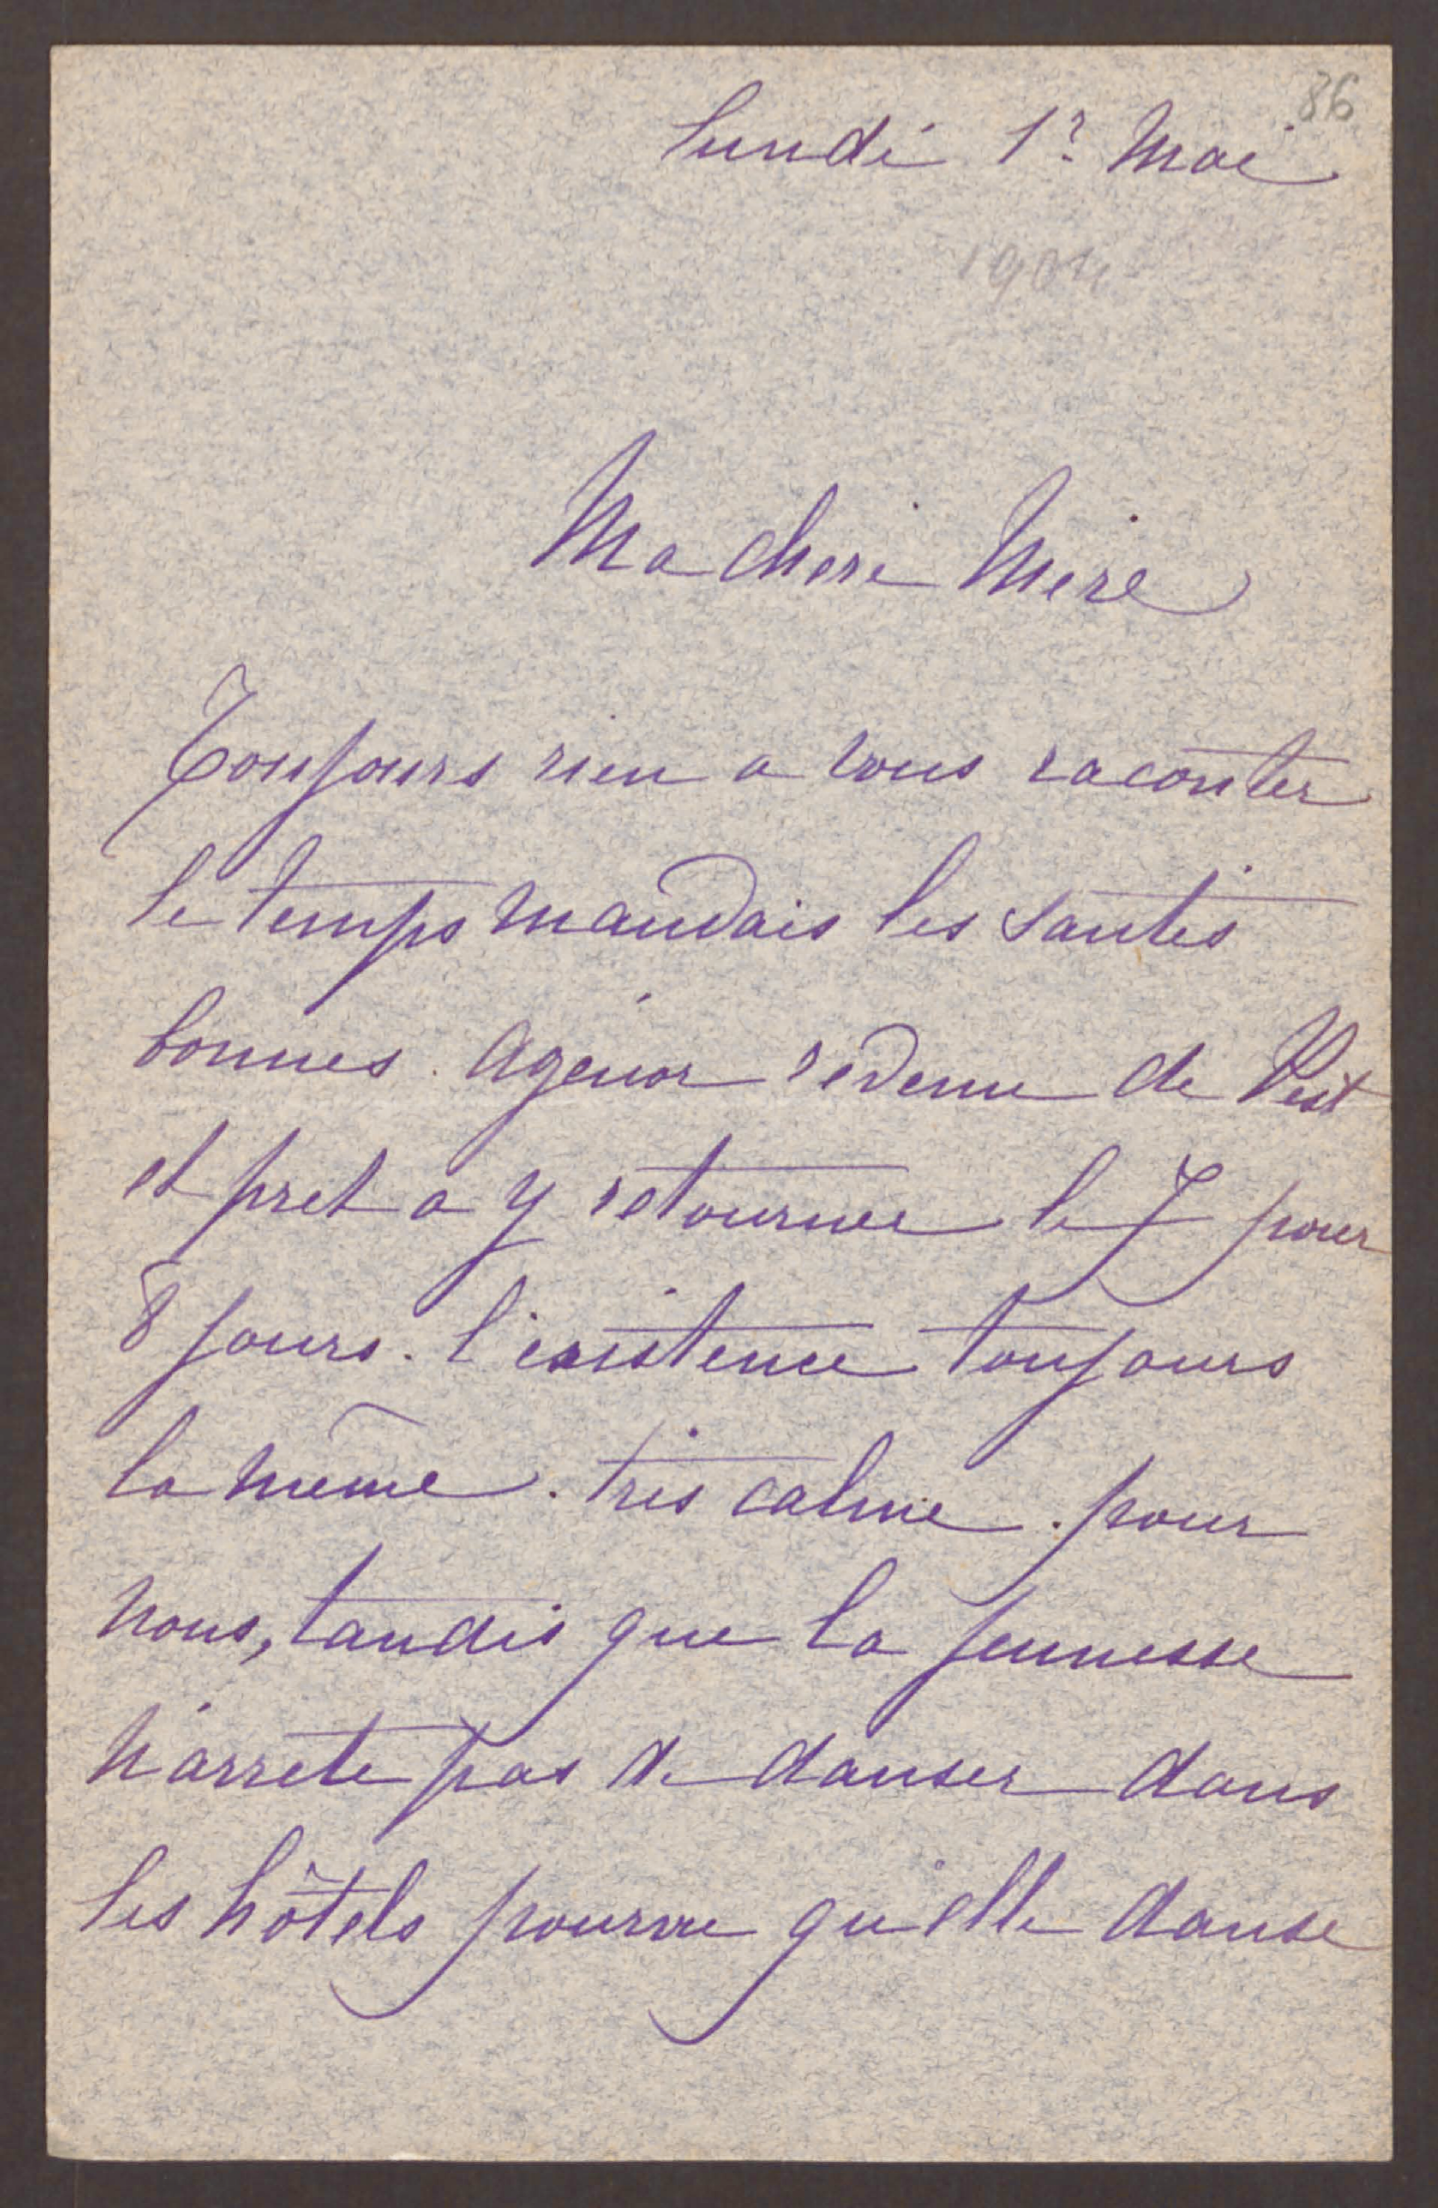 86
Lundi 1r Mai
1904
Ma chere Mere
Toujours rien a vous raconter
le temps mauvais les santés
bonnes. Agenor revenu de Pest
et pret a y retourner le 7 pour
8 jours. l'existence toujours
la même. très calme. pour
nous, tandis que la jeunesse
n'arrete pas de danser dans
les hôtels pourvu qu'elle danse